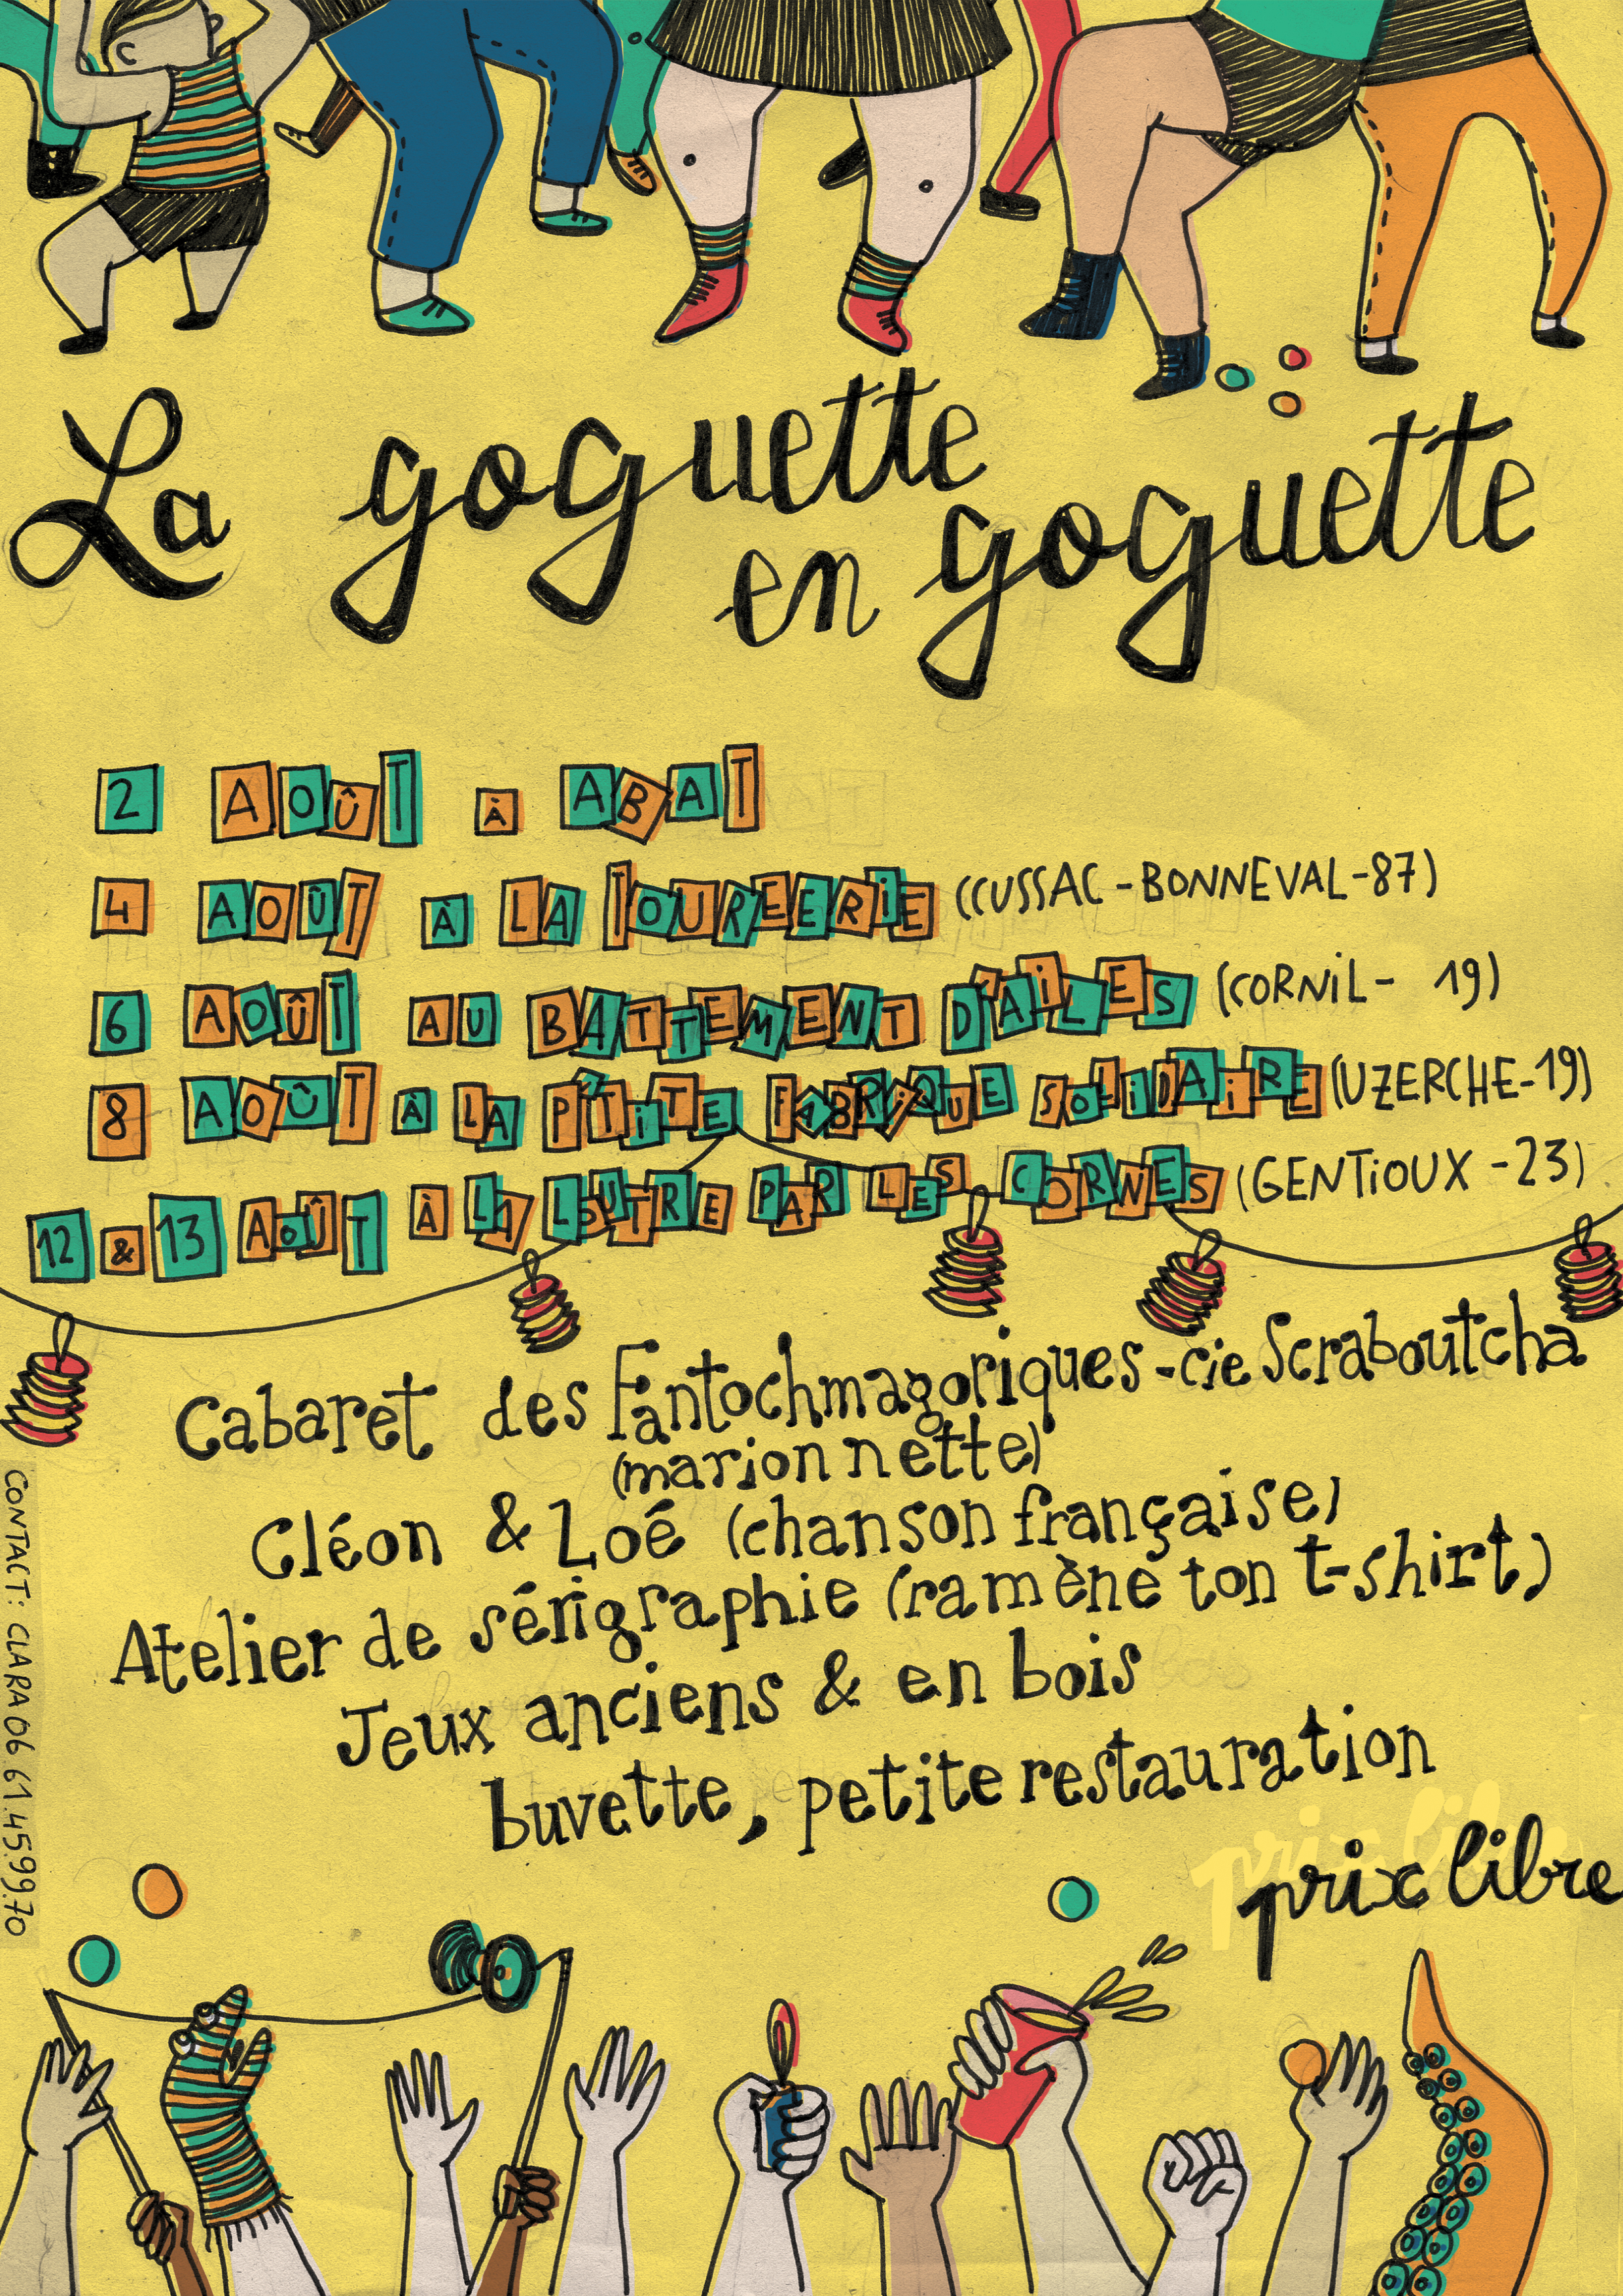 La goguette
en goguette
2 AOÛT À ABAT
4 AOÛT À LA TOUREERIE (CCUSSAC-BONNEVAL-87)
6 AOÛT AU BATTEMENT D'AiLES (CORNiL- 19)
8 AOÛT À LA P'TiTE FABRiQUE SOLiDAiRE (UZERCHE-19)
12 & 13 AOÛT À LA LOUTRE PAR LES CORNES (GENTiOUX -23)
Cabaret des Fantochmagoriques-cie Scraboutcha
(marion nette)
Cléon & Loé (chanson française)
Atelier de sérigraphie (ramène ton t-shirt)
Jeux anciens & en bois
buvette, petite restauration
prix libre
CONTACT: CLARA 06 61.45.99.70